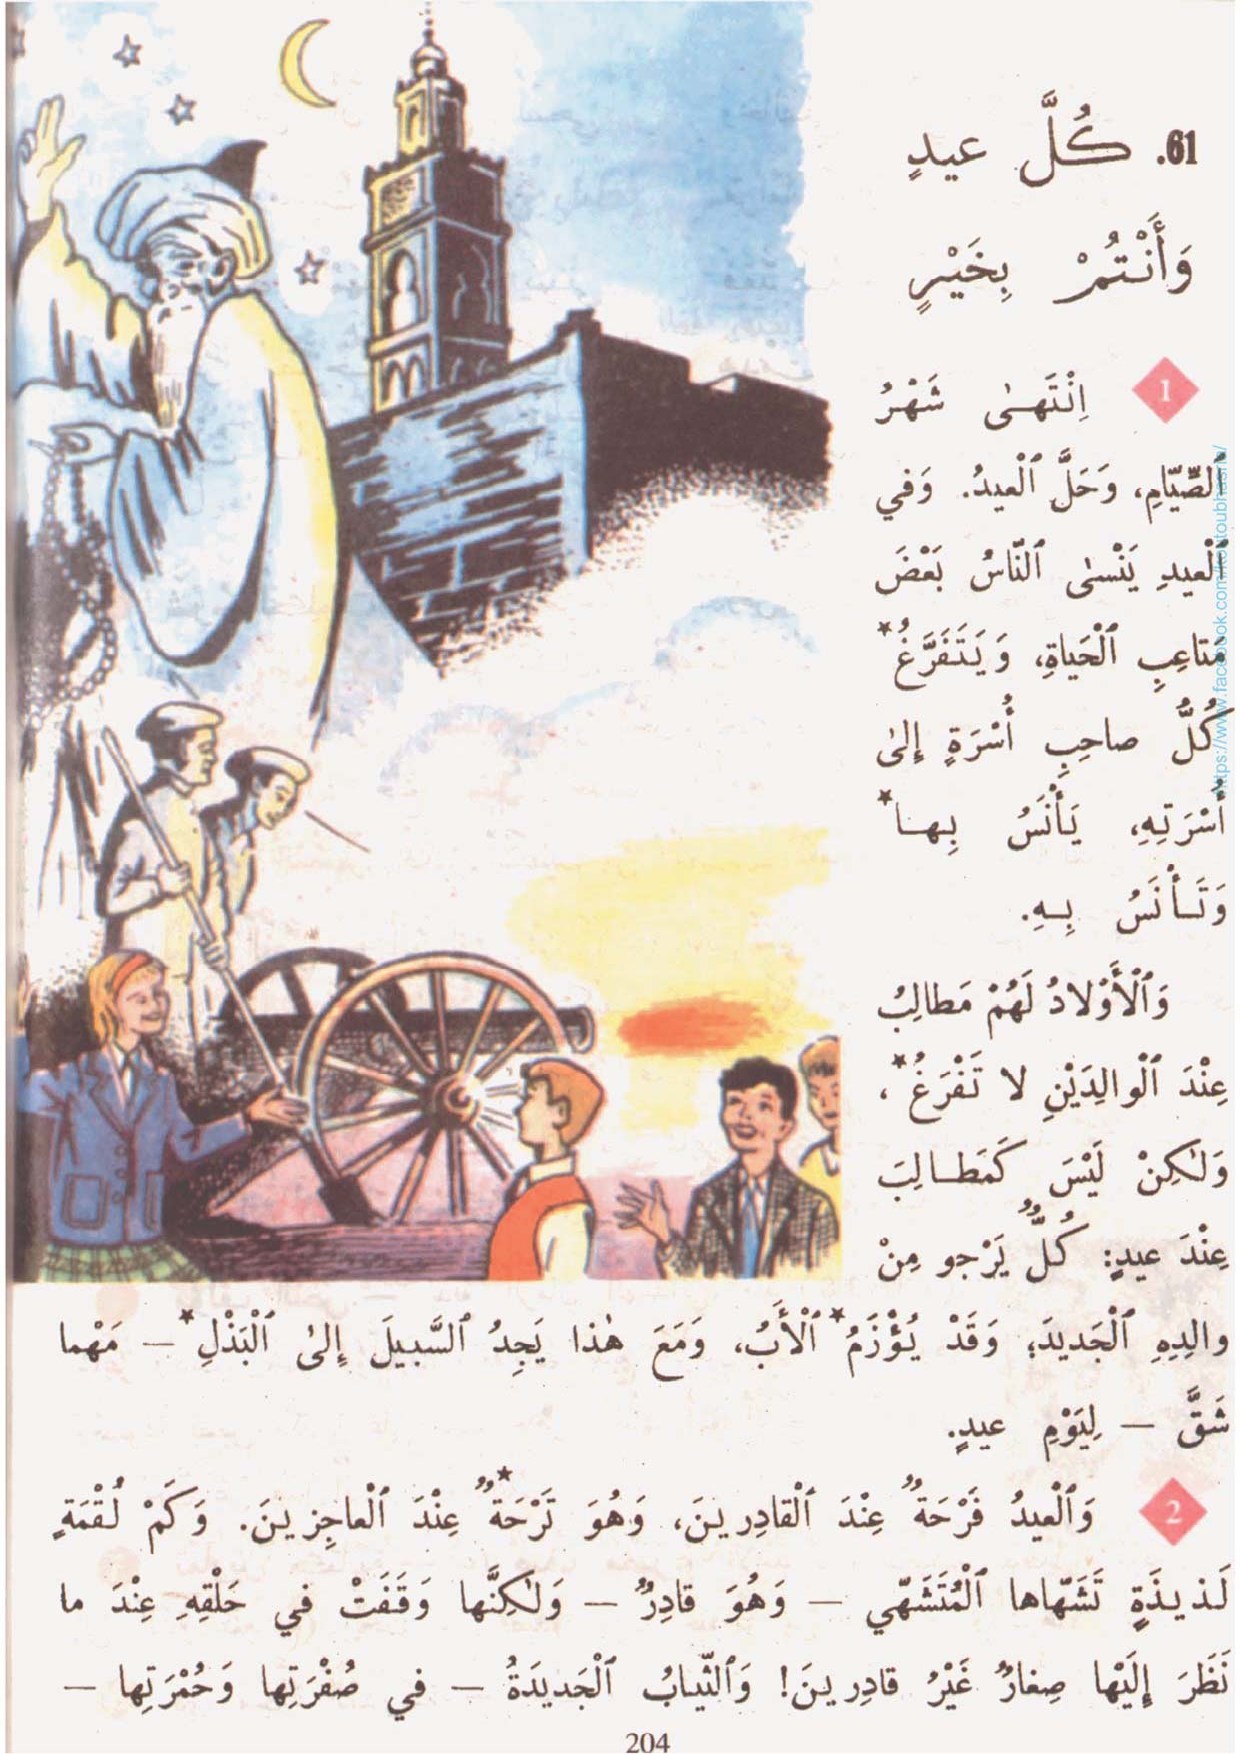 61. كُلَّ عيدٍ
وَأَنْتُمْ بِخَيْرٍ
1 اِنْتَهىٰ شَهْرُ
ٱلصِّيّامِ، وَحَلَّ ٱلْعيدُ. وَفي
ٱلْعيدِ يَنْسىٰ ٱلنّاسُ بَعْضَ
مَتاعِبِ ٱلْحَياةِ، وَيَتَفَرَّغُ*
كُلُّ صاحِبِ أُسْرَةٍ إِلىٰ
أُسْرَتِهِ، يَأْنَسُ بِها*
وَتَأْنَسُ بِهِ.
وَٱلْأَوْلادُ لَهُمْ مَطالِبُ
عِنْدَ ٱلْوالِدَيْنِ لا تَفْرَغُ*،
وَلٰكِنْ لَيْسَ كَمَطالِبَ
عِنْدَ عيدٍ: كُلٌّ يَرْجو مِنْ
والِدِهِ ٱلْجَديدَ؛ وَقَدْ يُؤْزَمُ* ٱلْأَبُ، وَمَعَ هٰذا يَجِدُ ٱلسَّبيلَ إِلىٰ ٱلْبَذْلِ* – مَهْما
شَقَّ – لِيَوْمِ عيدٍ.
2 وَٱلْعيدُ فَرْحَةٌ عِنْدَ ٱلْقادِرينَ، وَهُوَ تَرْحَةٌ* عِنْدَ ٱلْعاجِزينَ. وَكَمْ لُقْمَةٍ
لَذيذَةٍ تَشَهّاها ٱلْمُتَشَهّي – وَهُوَ قادِرٌ – وَلٰكِنَّها وَقَفَتْ في حَلْقِهِ عِنْدَ ما
نَظَرَ إِلَيْها صِغارٌ غَيْرُ قادِرينَ! وَٱلثِّيابُ ٱلْجَديدَةُ – في صُفْرَتِها وَحُمْرَتِها –
204
https://www.facebook.com/koutoubhasria/